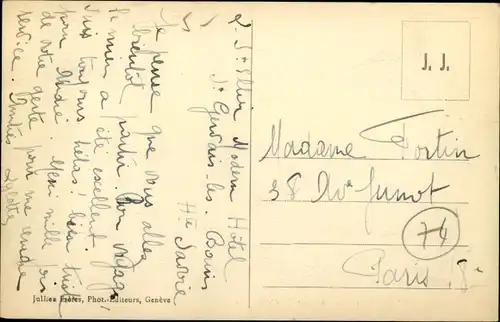 Modern Hôtel
St Gervais-les-Bains
Hte Savoie
Je pense que vous allez
bientôt partir. Bon voyage,
le mien a été excellent.
Suis toujours, hélas! bien triste
pour André. Merci mille fois
de votre geste pour me rendre
service. Amitiés
J. J.
Madame Fortin
38 Ave Junot
74
Paris 18e
Jullien Frères, Phot.-Editeurs, Genève